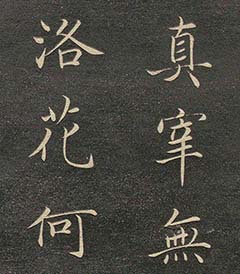 真宰無
洛花何